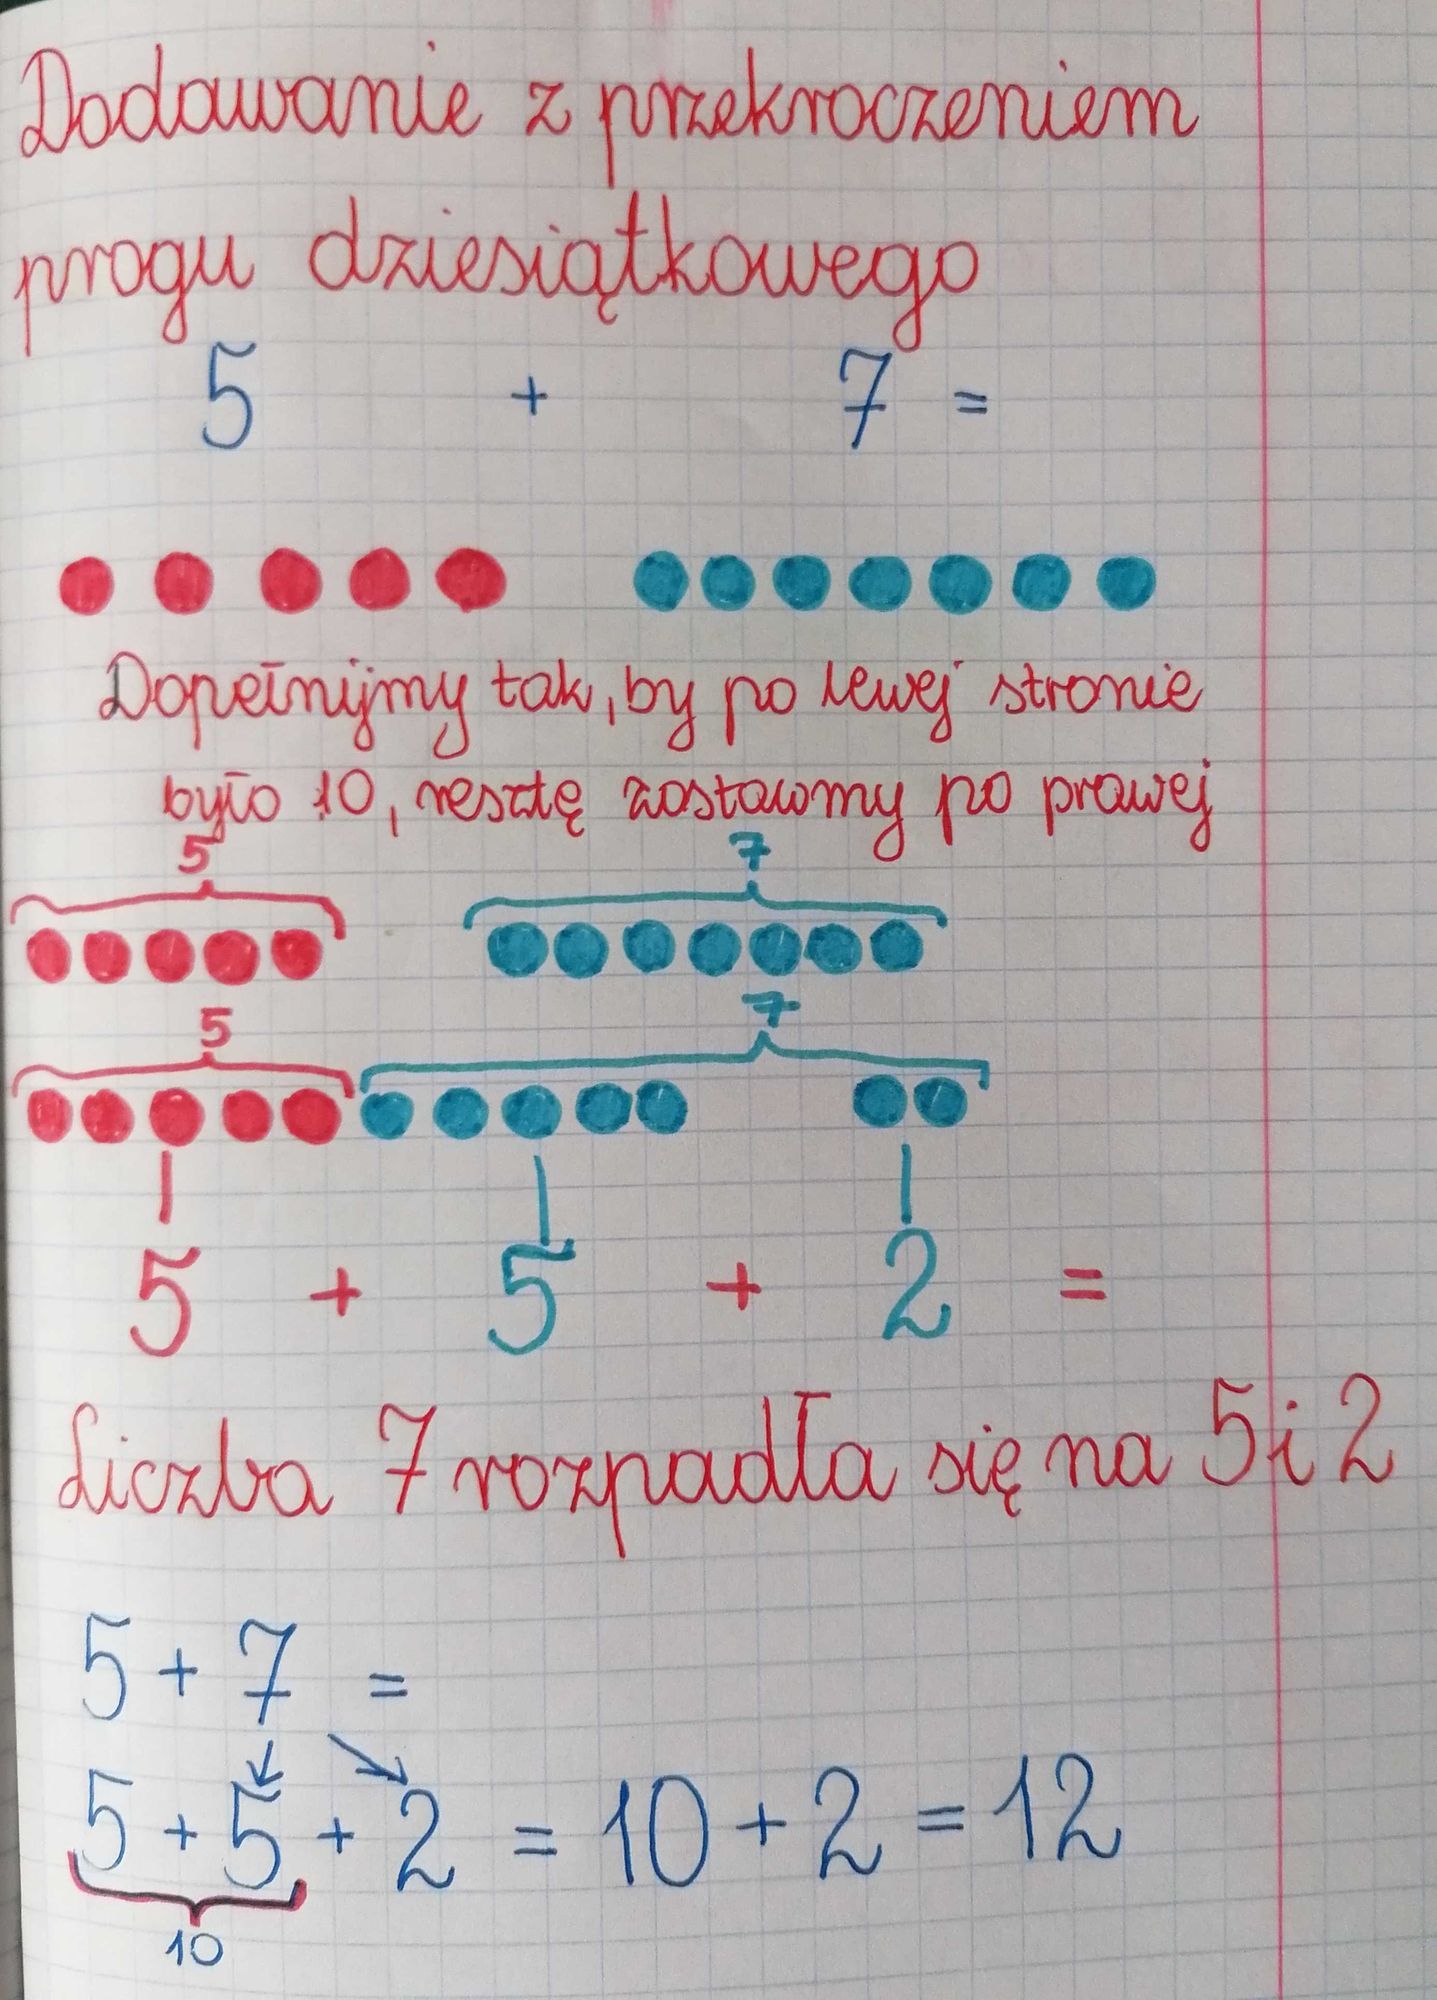 Dodawanie z przekroczeniem
progu dziesiątkowego
5 + 7 =
Dopełnijmy tak, by po lewej stronie
było 10, resztę zostawmy po prawej
5 7
5 7
5 + 5 + 2 =
Liczba 7 rozpadła się na 5 i 2
5 + 7 =
5 + 5 + 2 = 10 + 2 = 12
10